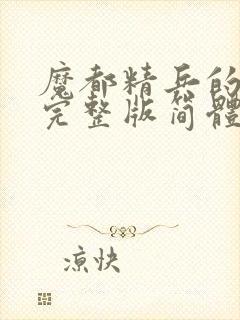 魔都精兵的
完整版简體
凉快